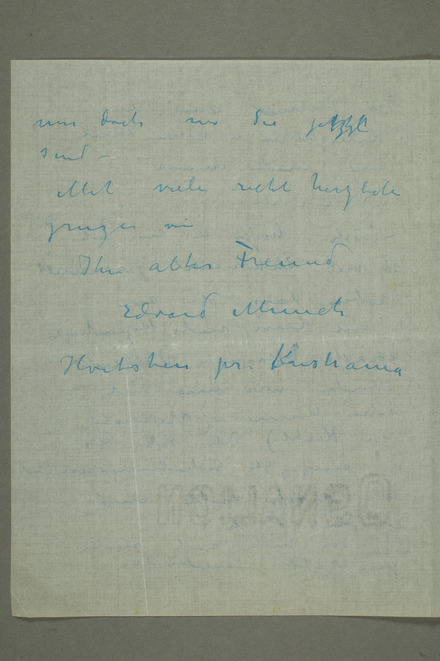 mir doch wo Sie jetzt
sind –
Mit viele recht herzliche
grüzse
Ihr alter Freund
Edvard Munch
Hvitsten pr. Kristiania